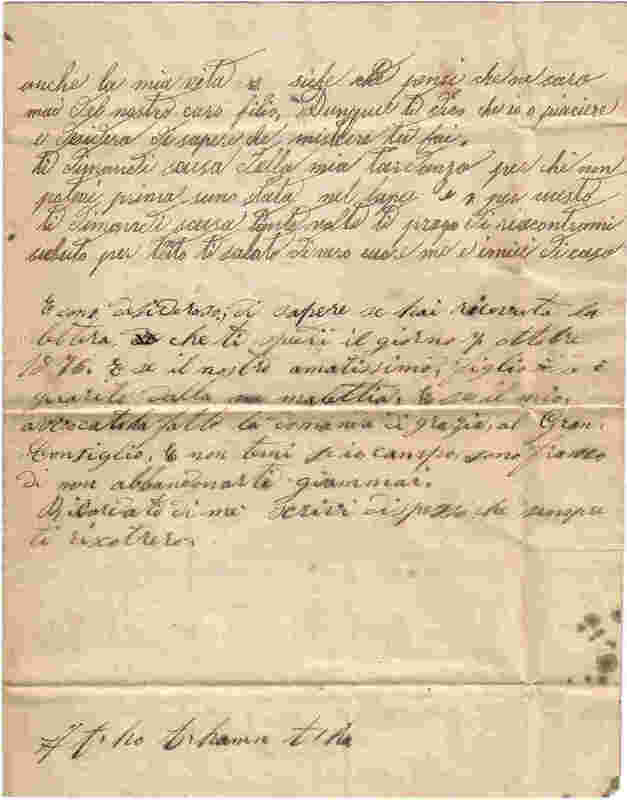 anche la mia vita e siche pensi che ne saro
mai del nostro caro filio, Dunque ti dico che io o piaciere
e desidera di sapere che mistiere tu fai.
ti dimandi scusa della mia tardanza per chi non
potui prima suno stata nel e per cuesto
ti dimandi scusa tante volte ti prego di riscontrarmi
subito per tutto ti saluto di vero cuore me e i miei di casa
E sono desideroso, di sapere se hai ricevuta la
lettera che ti spedi il giorno 7 ottobre
1876. E se il nostro amatissimo, figlio è
guarito dalla malattia. E se il mio,
avvocato ha fatto la domanda di grazia, al Gran,
Consiglio, E non temi se io campo, sono franco
di non abbandonarti giammai.
Ricordati di me scrivi di spesso che sempre
ti